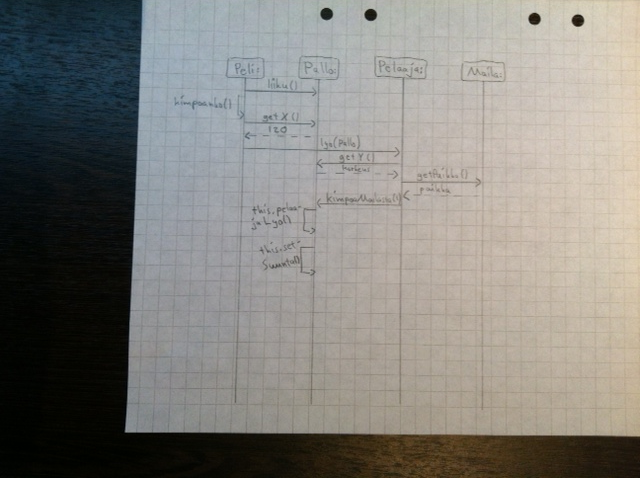 Peli:
Pallo:
Pelaaja:
Maila:
liiku()
kimpoaako()
getX()
120
lyo(Pallo)
getY()
korkeus
getPaikka()
paikka
kimpoaMailasta()
this.pelaa-
jaLyo()
this.set-
Suunta()